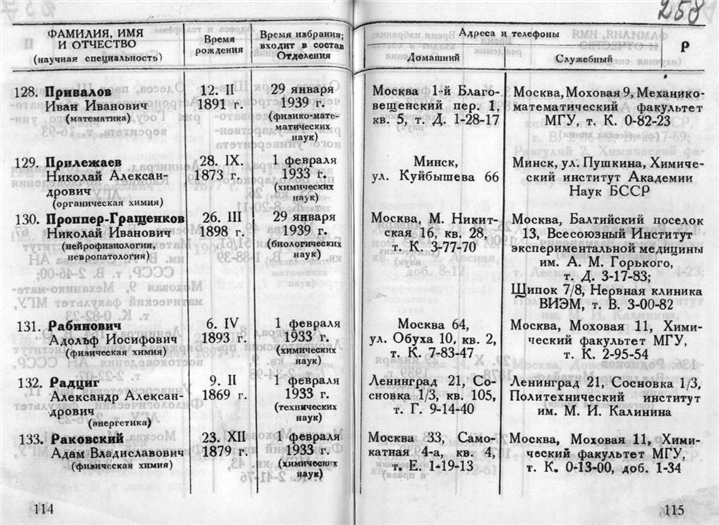 258
ФАМИЛИЯ, ИМЯ
И ОТЧЕСТВО
(научная специальность)
Время
рождения
Время избрания;
входит в состав
Отделения
Адреса и телефоны
Домашний
Служебный
Р
128. Привалов
Иван Иванович
(математика)
12. II
1891 г.
29 января
1939 г.
(физико-мате-
матических
наук)
Москва 1-й Благо-
вещенский пер. 1,
кв. 5, т. Д. 1-28-17
Москва, Моховая 9, Механико-
математический факультет
МГУ, т. К. 0-82-23
129. Прилежаев
Николай Алексан-
дрович
(органическая химия)
28. IX.
1873 г.
1 февраля
1933 г.
(химических
наук)
Минск,
ул. Куйбышева 66
Минск, ул. Пушкина, Химиче-
ский институт Академии
Наук БССР
130. Проппер-Гращенков
Николай Иванович
(нейрофизиология,
невропатология)
26. III
1898 г.
29 января
1939 г.
(биологических
наук)
Москва, М. Никит-
ская 16, кв. 28,
т. К. 3-77-70
Москва, Балтийский поселок
13, Всесоюзный Институт
экспериментальной медицины
им. А. М. Горького,
т. Д. 3-17-83;
Щипок 7/8, Нервная клиника
ВИЭМ, т. В. 3-00-82
131. Рабинович
Адольф Иосифович
(физическая химия)
6. IV
1893 г.
1 февраля
1933 г.
(химических
наук)
Москва 64,
ул. Обуха 10, кв. 2,
т. К. 7-83-47
Москва, Моховая 11, Хими-
ческий факультет МГУ,
т. К. 2-95-54
132. Радциг
Александр Алексан-
дрович
(энергетика)
9. II
1869 г.
1 февраля
1933 г.
(технических
наук)
Ленинград 21, Со-
сновка 1/3, кв. 105,
т. Г. 9-14-40
Ленинград 21, Сосновка 1/3,
Политехнический институт
им. М. И. Калинина
133. Раковский
Адам Владиславович
(физическая химия)
23. XII
1879 г.
1 февраля
1933 г.
(химических
наук)
Москва 33, Само-
катная 4-а, кв. 4,
т. Е. 1-19-13
Москва, Моховая 11, Хими-
ческий факультет МГУ,
т. К. 0-13-00, доб. 1-34
114
115